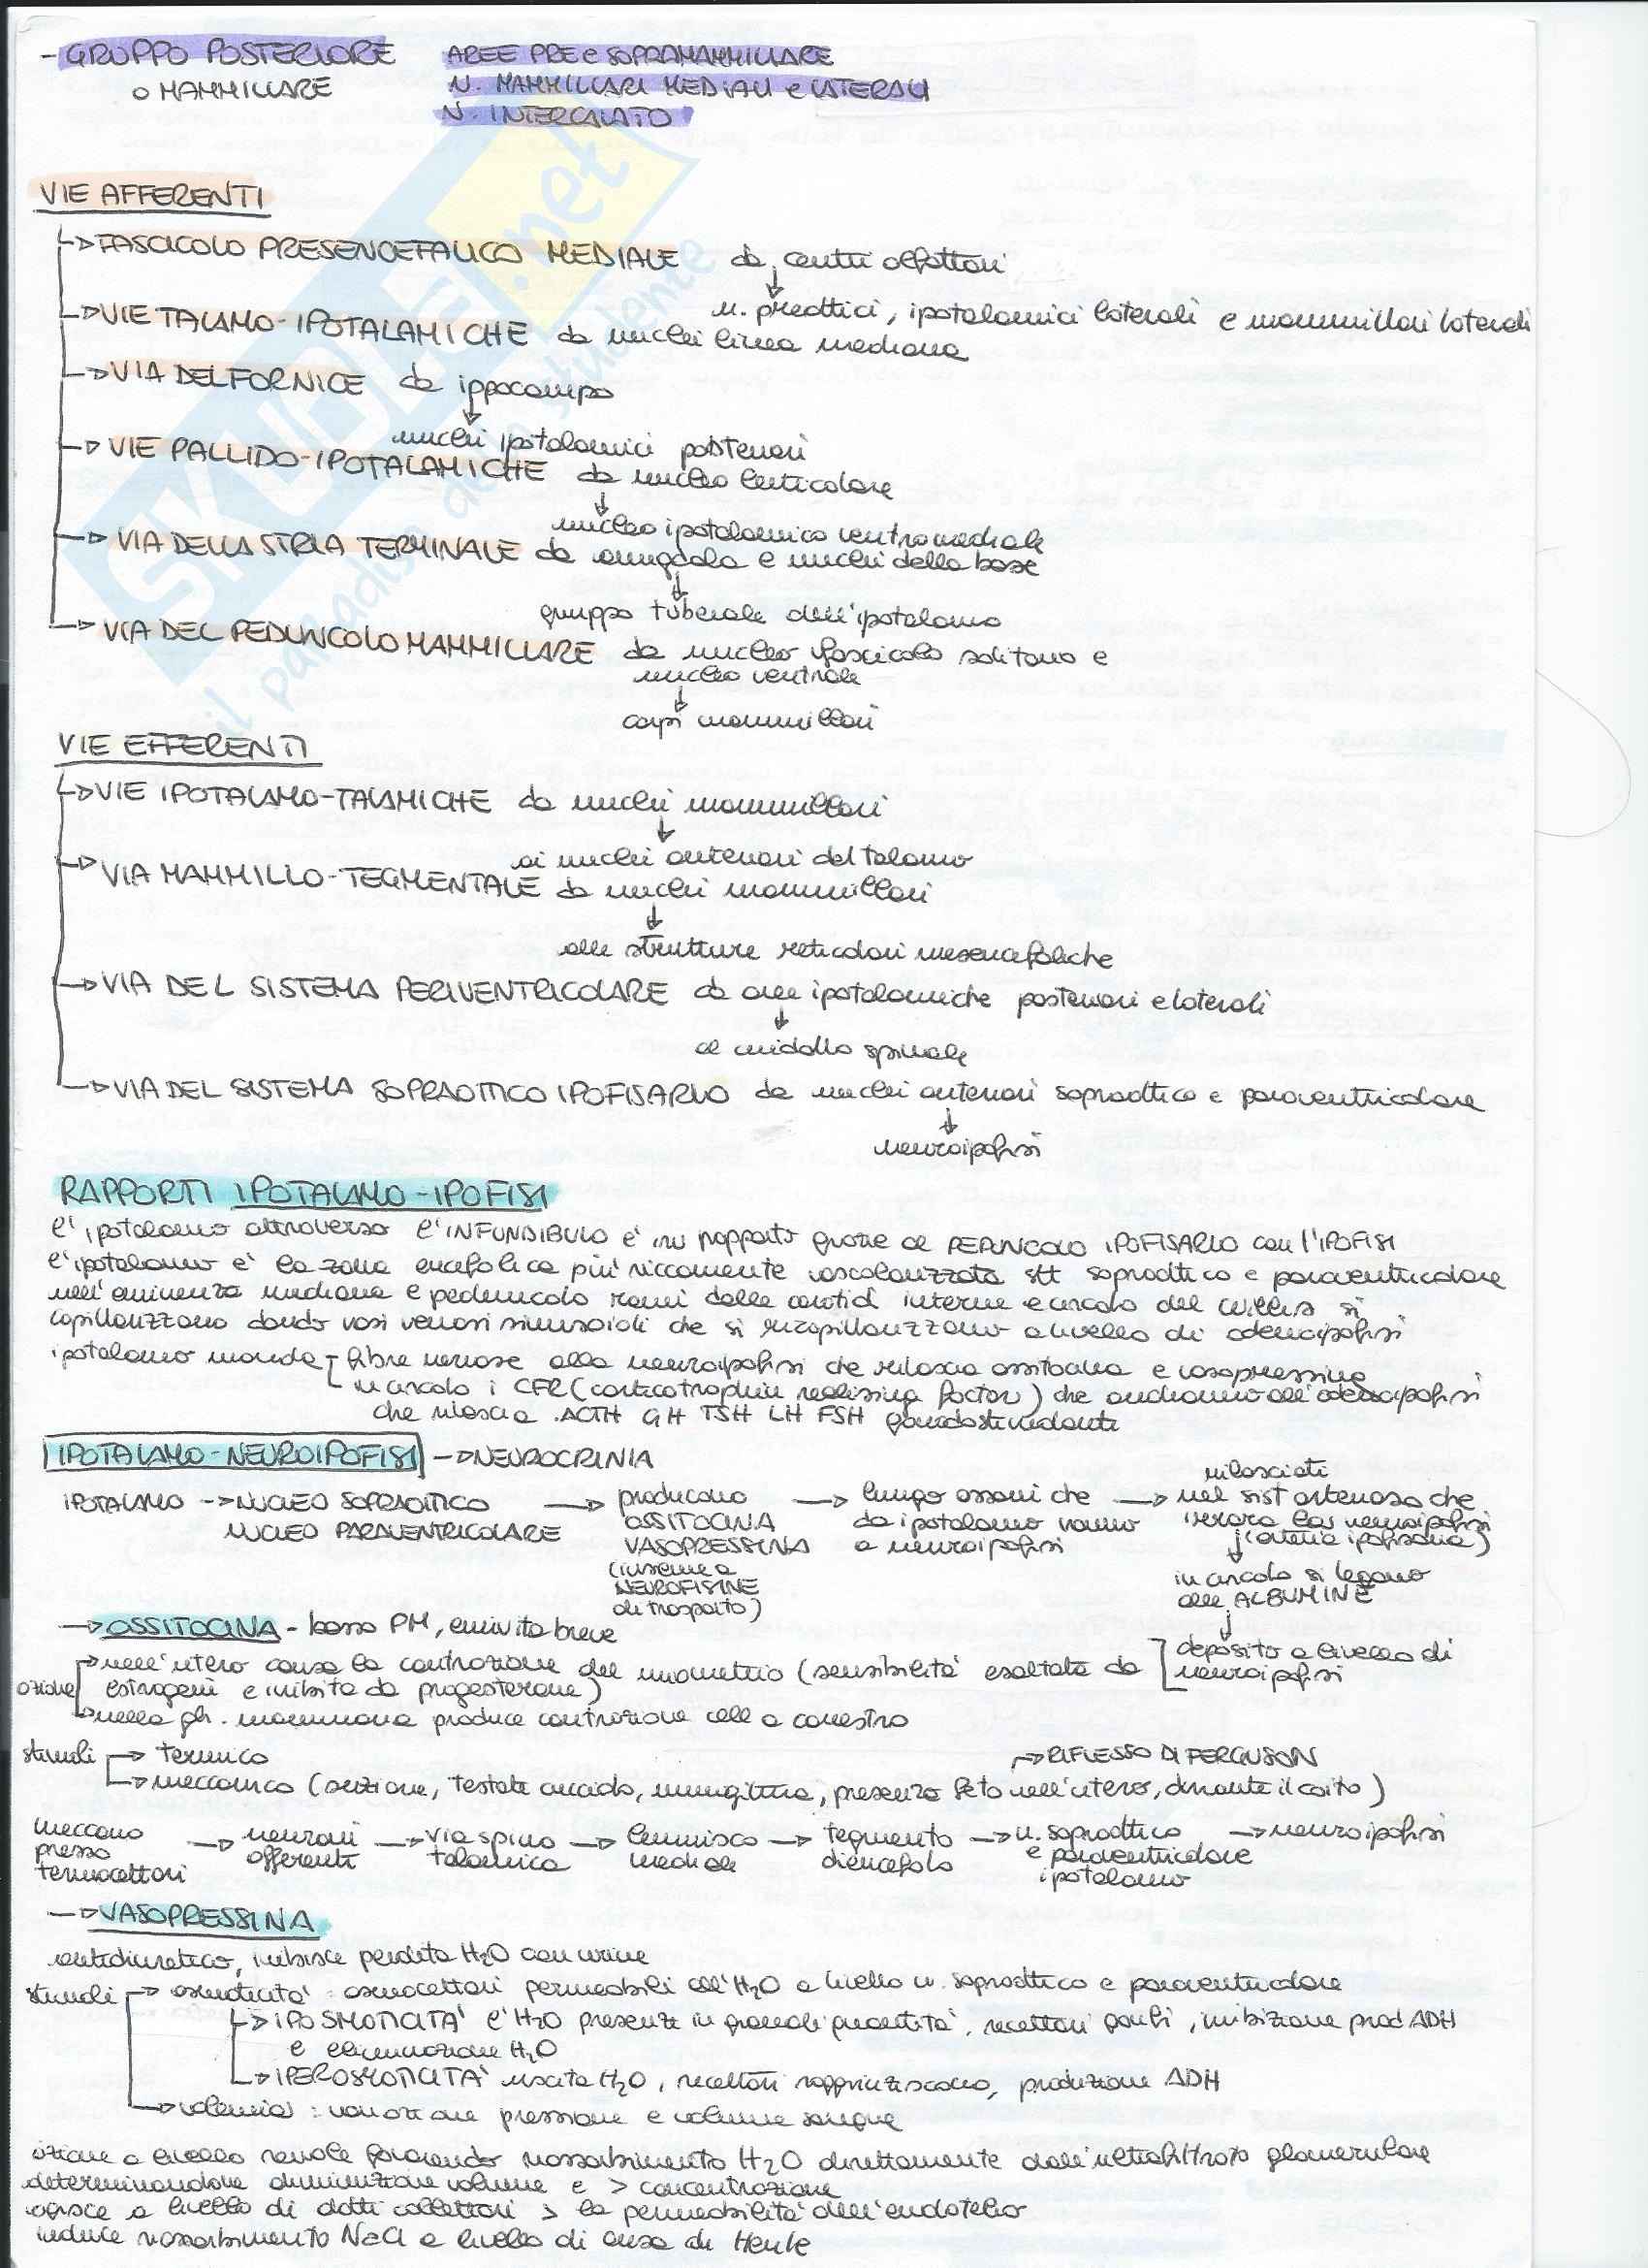 - GRUPPO POSTERIORE AREE PRE e SOPRAMAMMILLARE
o MAMMILLARE N. MAMMILLARI MEDIALI e LATERALI
N. INTERCALATO
VIE AFFERENTI
→ FASCICOLO PRESENCEFALICO MEDIALE da centri olfattori
↓
n. preottici, ipotalamici laterali e mammillari laterali
→ VIE TALAMO-IPOTALAMICHE da nuclei linea mediana
→ VIA DEL FORNICE da ippocampo
↓
nuclei ipotalamici posteriori
→ VIE PALLIDO-IPOTALAMICHE da nucleo lenticolare
↓
nucleo ipotalamico ventromediale
→ VIA DELLA STRIA TERMINALE da amigdala e nuclei della base
↓
gruppo tuberale dell'ipotalamo
→ VIA DEL PEDUNCOLO MAMMILLARE da nucleo fascicolo solitario e
nucleo ventrale
↓
corpi mammillari
VIE EFFERENTI
→ VIE IPOTALAMO-TALAMICHE da nuclei mammillari
↓
ai nuclei anteriori del talamo
→ VIA MAMMILLO-TEGMENTALE da nuclei mammillari
↓
alle strutture reticolari mesencefaliche
→ VIA DEL SISTEMA PERIVENTRICOLARE da aree ipotalamiche posteriori e laterali
↓
al midollo spinale
→ VIA DEL SISTEMA SOPRAOTTICO IPOFISARIO da nuclei anteriori sopraottico e paraventricolare
↓
neuroipofisi
RAPPORTI IPOTALAMO-IPOFISI
l'ipotalamo attraverso l'INFUNDIBULO è in rapporto grazie al PEDUNCOLO IPOFISARIO con l'IPOFISI
l'ipotalamo è la zona encefalica più riccamente vascolarizzata stt sopraottico e paraventricolare
nell'eminenza mediana e peduncolo rami delle carotidi interne e circolo del Willis si
capillarizzano dando vasi venosi sinusoidi che si ricapillarizzano a livello di adenoipofisi
ipotalamo manda - fibre nervose alla neuroipofisi che rilascia ossitocina e vasopressina
- in circolo i CFR (corticotrophin realising factor) che andranno all'adenoipofisi
che rilascia ACTH GH TSH LH FSH gonadostimolante
IPOTALAMO-NEUROIPOFISI → NEUROCRINIA
IPOTALAMO → NUCLEO SOPRAOTTICO → producono → lungo assoni che → rilasciati nel sist arterioso che
NUCLEO PARAVENTRICOLARE OSSITOCINA da ipotalamo vanno irrora la neuroipofisi
VASOPRESSINA a neuroipofisi (arteria ipofisaria)
(insieme a ↓
NEUROFISINE in circolo si legano
di trasporto) alle ALBUMINE
↓
→ OSSITOCINA - basso PM, emivita breve
deposito a livello di
neuroipofisi
azione → nell'utero causa la contrazione del miometrio (sensibilità esaltata da
estrogeni e inibita da progesterone)
→ nella gh. mammaria produce contrazione cell a canestro
stimoli → termico → RIFLESSO DI FERGUSON
→ meccanico (suzione, testata, mungitura, presenza feto nell'utero, durante il coito)
meccano → neuroni → via spino → lemnisco → tegmento → n. sopraottico → neuroipofisi
presso afferenti talamica mediale diencefalo e paraventricolare
termocettori ipotalamo
→ VASOPRESSINA
antidiuretico, inibisce perdita H2O con urine
stimoli → osmoticità: osmocettori permeabili all'H2O a livello n. sopraottico e paraventricolare
→ IPOSMOTICITÀ l'H2O presente in grandi quantità, recettori gonfi, inibizione prod ADH
e eliminazione H2O
→ IPEROSMOTICITÀ uscita H2O, recettori raggrinziscono, produzione ADH
→ volemia: variazione pressione e volume sangue
azione a livello renale favorendo riassorbimento H2O direttamente dall'ultrafiltrato glomerulare
determinandone diminuzione volume e > concentrazione
agisce a livello di dotti collettori > la permeabilità dell'endotelio
induce riassorbimento NaCl a livello di ansa di Henle
SKUOLA.net
il paradiso dello studente